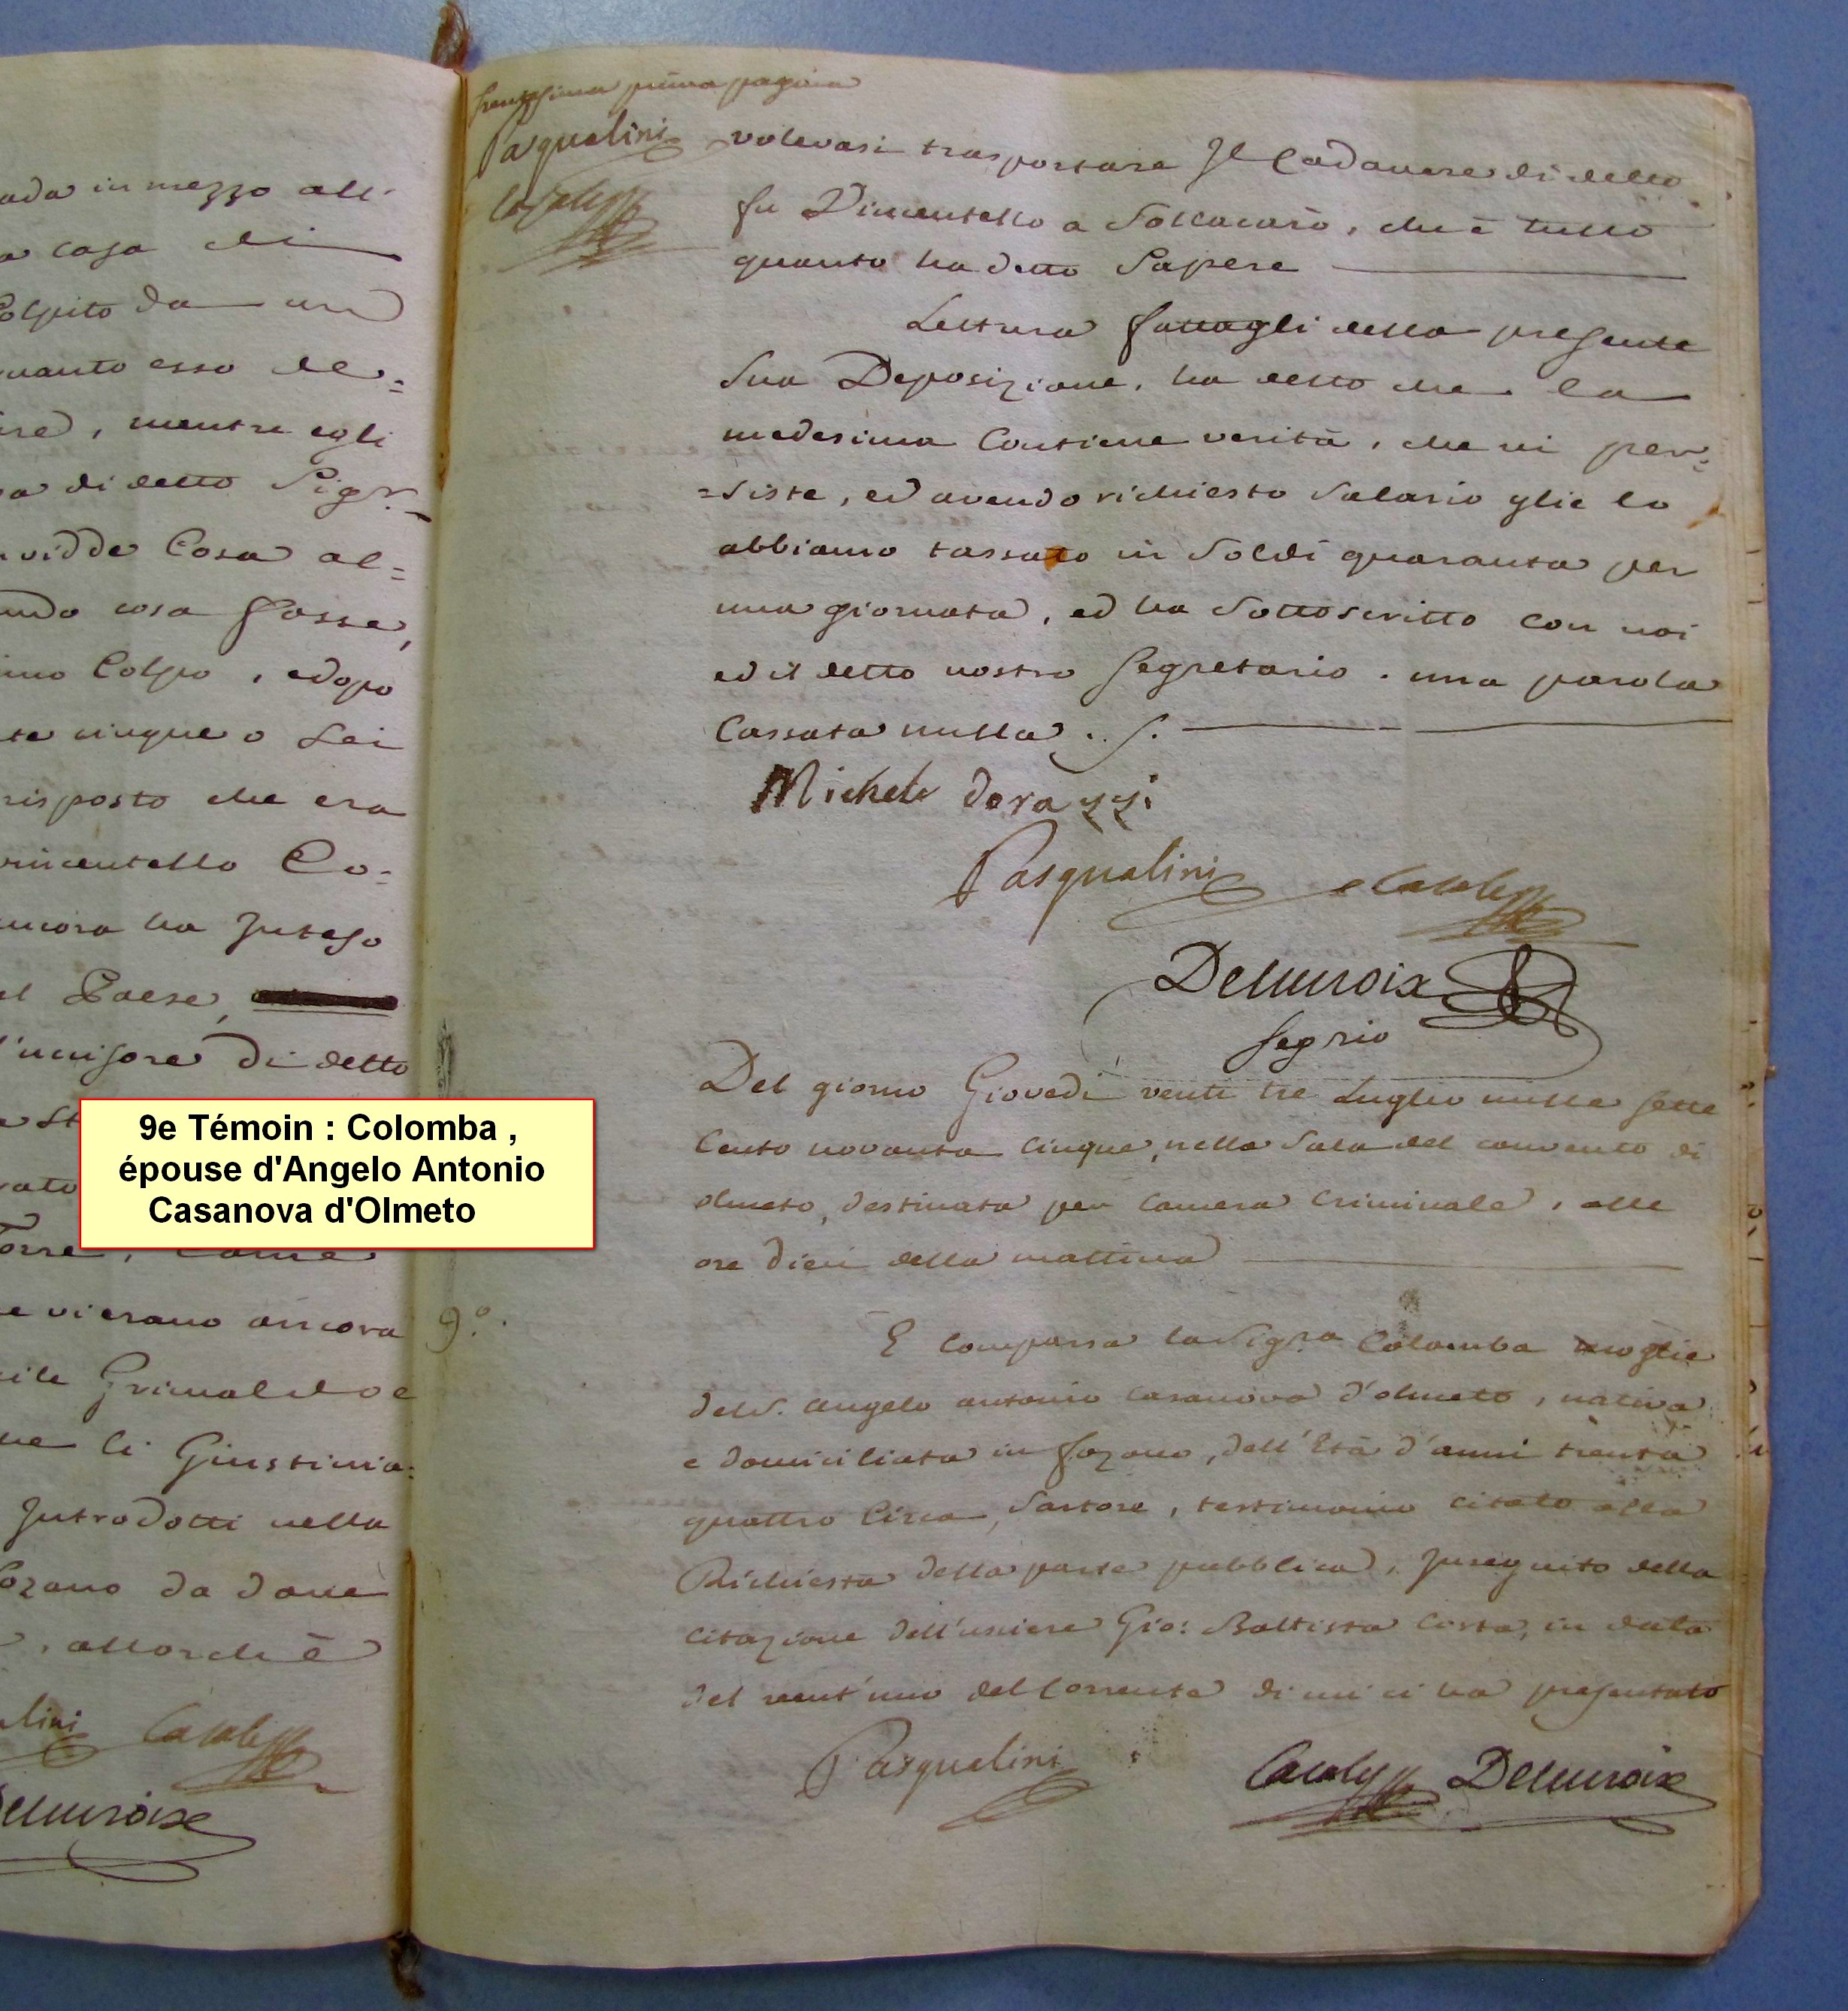 ada in mezzo all'
a casa di
Colpito da un
quanto esso de=
ire, mentre egli
sa di detto Sigr.
vidde Cosa al=
ando cosa fosse,
imo Colpo, e dopo
te cinque o Sei
risposto che era
Vincentello Co=
ancora ha Inteso
el Paese,
l'uccisore di detto
rato
Torre, Come
e vi erano ancora
Grimaldo e
che li Giustinia=
Introdotti nella
fozano da dove
, allorchè
Pasqualini Casale
Delacroix
9e Témoin : Colomba ,
épouse d'Angelo Antonio
Casanova d'Olmeto
trentesima prima pagina
Pasqualini
Casale
volevasi trasportare Il Cadavere di detto
fu Vincentello a Sollacarò, che è tutto
quanto ha detto Sapere
Lettura fattagli della presente
Sua Deposizione, ha detto che la
medesima Contiene verità, che vi per=
=siste, ed avendo richiesto Salario glie lo
abbiamo tassato in Soldi quaranta per
una giornata, ed ha Sottoscritto con noi
ed il detto nostro Segretario. una parola
Cassata nulla. S.
Michele dorazzi
Pasqualini Casale
Delacroix
Segrio
Del giorno Giovedì venti tre Luglio mille sette
Cento novanta Cinque, nella Sala del convento di
olmeto, destinata per Camera Criminale, alle
ore dieci della mattina
9.°
E comparsa la Sigra Colomba moglie
del S. Angelo antonio Casanova d'olmeto, nativa
e domiciliata in fozano, dell'Età d'anni trenta
quattro Circa, Sartore, testimonio citato alla
Richiesta della parte pubblica, In seguito della
citazione dell'usciere Gio: Battista Costa, in data
del vent'uno del Corrente di cui ci ha presentato
Pasqualini Casale Delacroix